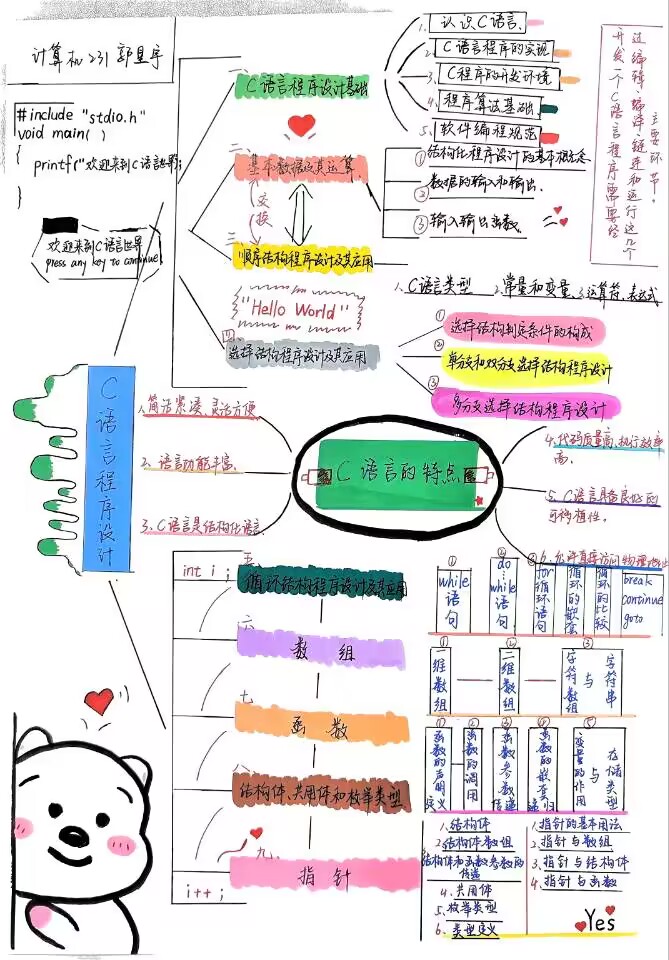 计算机231 郭星宇
#include "stdio.h"
void main( )
{
printf("欢迎来到C语言世界;
}
欢迎来到C语言世界
press any key to continue
C语言程序设计
一、
C语言程序设计基础
1. 认识C语言.
2. C语言程序的实现
3. C程序的开发环境
4. 程序算法基础.
5. 软件编程规范
开发一个C语言程序需要经
过编辑、编译、链连和运行这几个
主要环节。
二、
基本数据及其运算
交换
①结构化程序设计的基本概念
②数据的输入和输出.
③输入输出函数.
三、
顺序结构程序设计及其应用
1、C语言类型 2、常量和变量 3、运算符、表达式
"Hello World"
四、
选择结构程序设计及其应用
① 选择结构判定条件的构成
② 单分支和双分支选择结构程序设计
③ 多分支选择结构程序设计
C语言的特点
1、简洁紧凑、灵活方便
2、语言功能丰富.
3. C语言是结构化语言.
4.代码质量高、执行效率
高.
5. C语言具备良好的
可移植性.
6.允许直接访问物理地址
int i ;
五、
循环结构程序设计及其应用
① while语句
② do…while语句
③ for循环语句
循环的嵌套
循环的比较
break
continue
goto
六、
数组
① 一维数组
② 二维数组
③ 字符数组与字符串
七、
函数
① 函数的声明定义
② 函数的调用
③ 函数参数传递
④ 函数的嵌套递归
⑤ 变量的作用与存储类型
八、
结构体、共用体和枚举类型
1. 结构体
2. 结构体数组
结构体和函数参数的
传递
4. 共用体
5. 枚举类型
6. 类型定义
九、
指针
1. 指针的基本用法
2. 指针与数组
3. 指针与结构体
4. 指针与函数
i++ ;
Yes